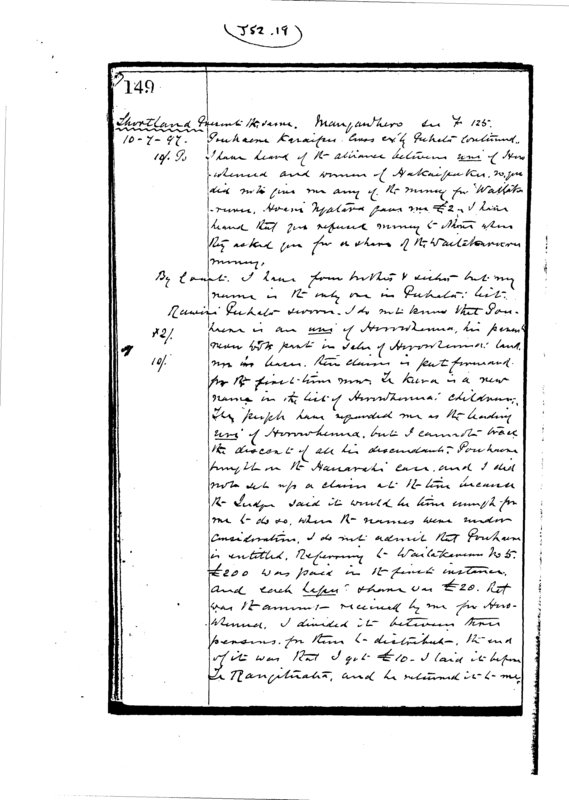 J52.19
149
Shortland Present the same. Mangawhero see F 125.
10-7-97. Pouhaera Karaipu cross ex by Puhata continued.
10/. I have heard of the alliance between uri of Horo-
whenua and women of. you
did not give me any of the money for Waitaka-
ruru, Hoani gave me £2. I have
heard that you refused money to others when
they asked you for a share of the Waitakaruru
money.
By Court. I have four brothers & sisters but my
name is the only one in Puhata's list.
Puhata sworn. I do not know that Pou-
is an uri of Horowhenua, his parents
£2/. never took part in sales of Horowhenua's land
10/. nor in leases. This claim is put forward
for the first time now. Te Kura is a new
name in the list of Horowhenua's children.
The people have regarded me as the leading
uri of Horowhenua, but I cannot trace
the descent of all his descendants.
brought on the case, and I did
not set up a claim at the time because
the Judge said it would be time enough for
me to do so, when the names were under
consideration. I do not admit that
is entitled. Referring to Waitakaruru No 5.
£200 was paid in the first instance,
and each hapu's share was £20. that
was the amount received by me for Horo-
whenua. I divided it between three
persons for them to distribute. The end
of it was that I got £10. I laid it before
Te Rangituatea, and he returned it to me,